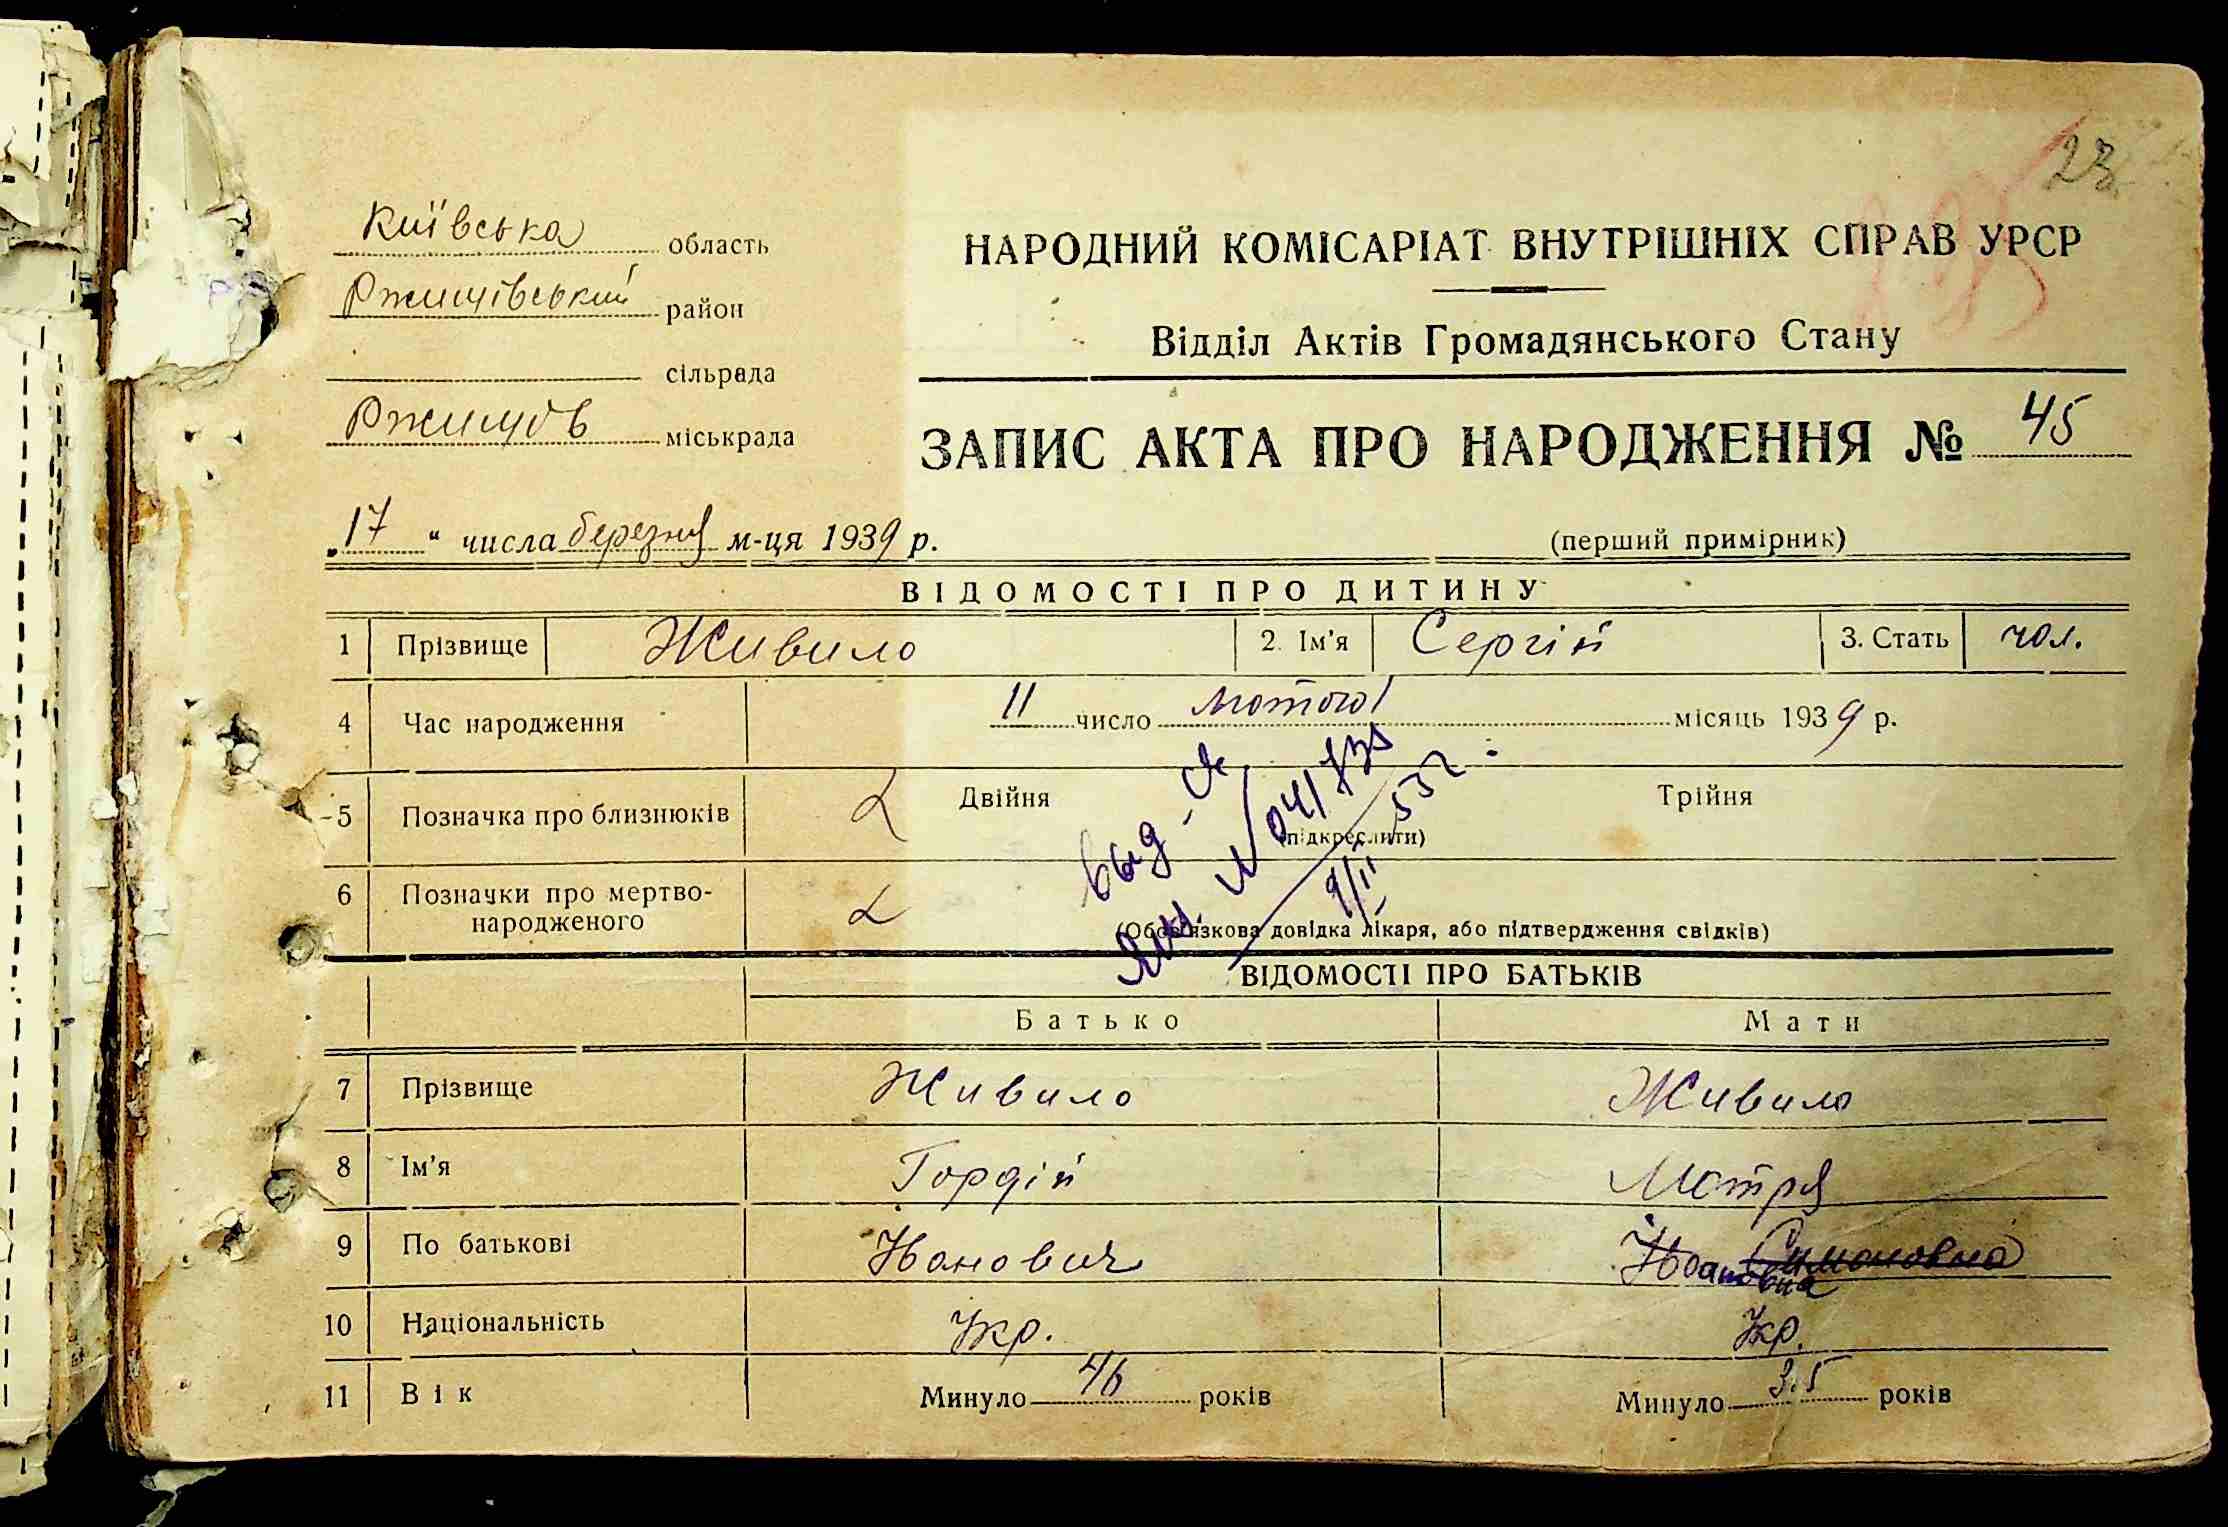 23
Київська область
Ржищівський район
сільрада
Ржищів міськрада
НАРОДНИЙ КОМІСАРІАТ ВНУТРІШНІХ СПРАВ УРСР
Відділ Актів Громадянського Стану
ЗАПИС АКТА ПРО НАРОДЖЕННЯ № 45
„17“ числа березня м-ця 1939 р.
(перший примірник)
ВІДОМОСТІ ПРО ДИТИНУ
1 Прізвище Живило 2. Ім'я Сергій 3. Стать чол.
4 Час народження 11 число лютого місяць 1939 р.
5 Позначка про близнюків Двійня Трійня
(підкреслити)
6 Позначки про мертво-
народженого
(Обов'язкова довідка лікаря, або підтвердження свідків)
выд-
№ 041
9/II 53 г.
ВІДОМОСТІ ПРО БАТЬКІВ
Батько Мати
7 Прізвище Живило Живило
8 Ім'я Гордій Мотря
9 По батькові Іванович Симоновна Івановна
10 Національність Укр. Укр.
11 Вік Минуло 46 років Минуло 35 років